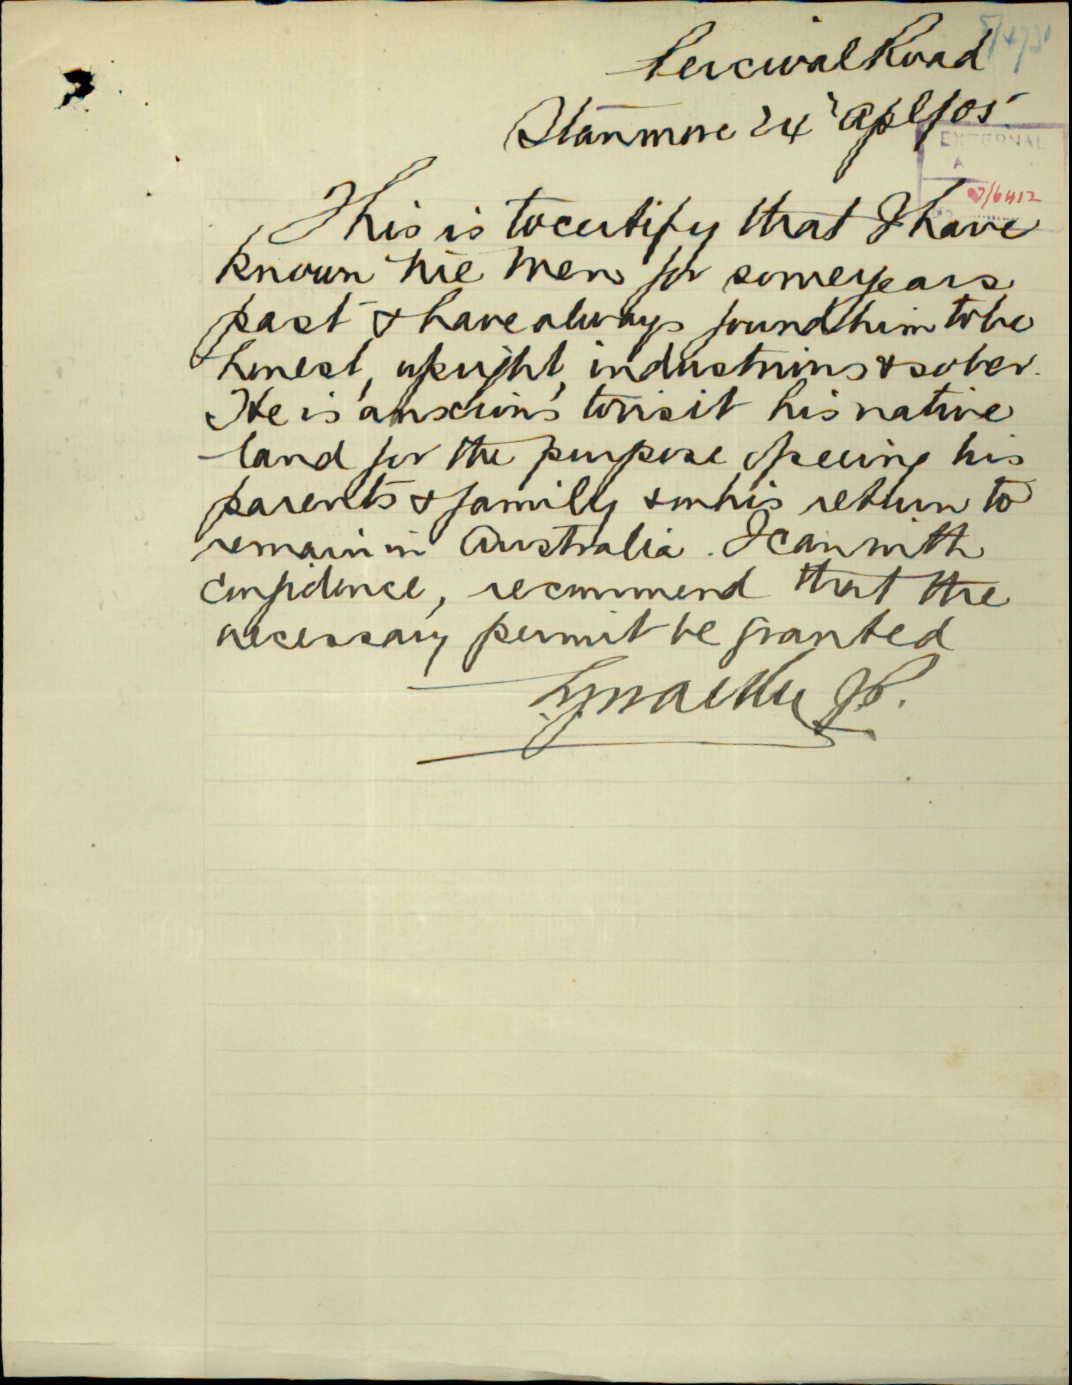 Percival Road
Stanmore 24 Apl/05.
EXTERNAL
A
/6412
This is to certify that I have
known Hie Men for some years
past & have always found him to be
honest, upright, industrious & sober.
He is anxious to visit his native
land for the purpose of seeing his
parents & family & on his return to
remain in Australia. I can with
confidence, recommend that the
necessary permit be granted
JP.